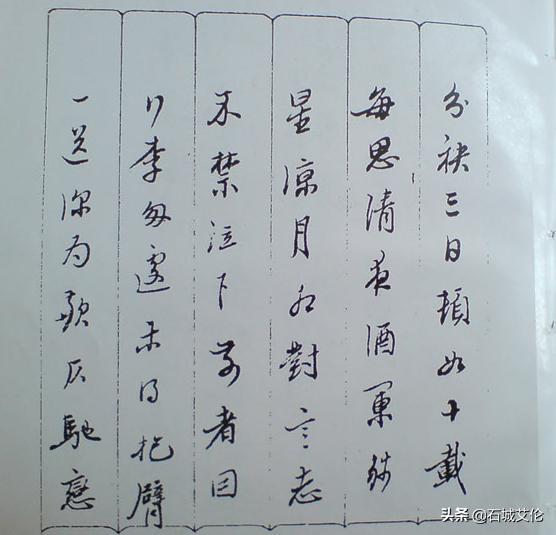 分袂三日頓如十載
每思清夜酒闌殘
星凉月相對言志
不禁泣下前者因
行李匆遽未得把臂
一送深为歉仄馳戀
头条 @石城艾伦